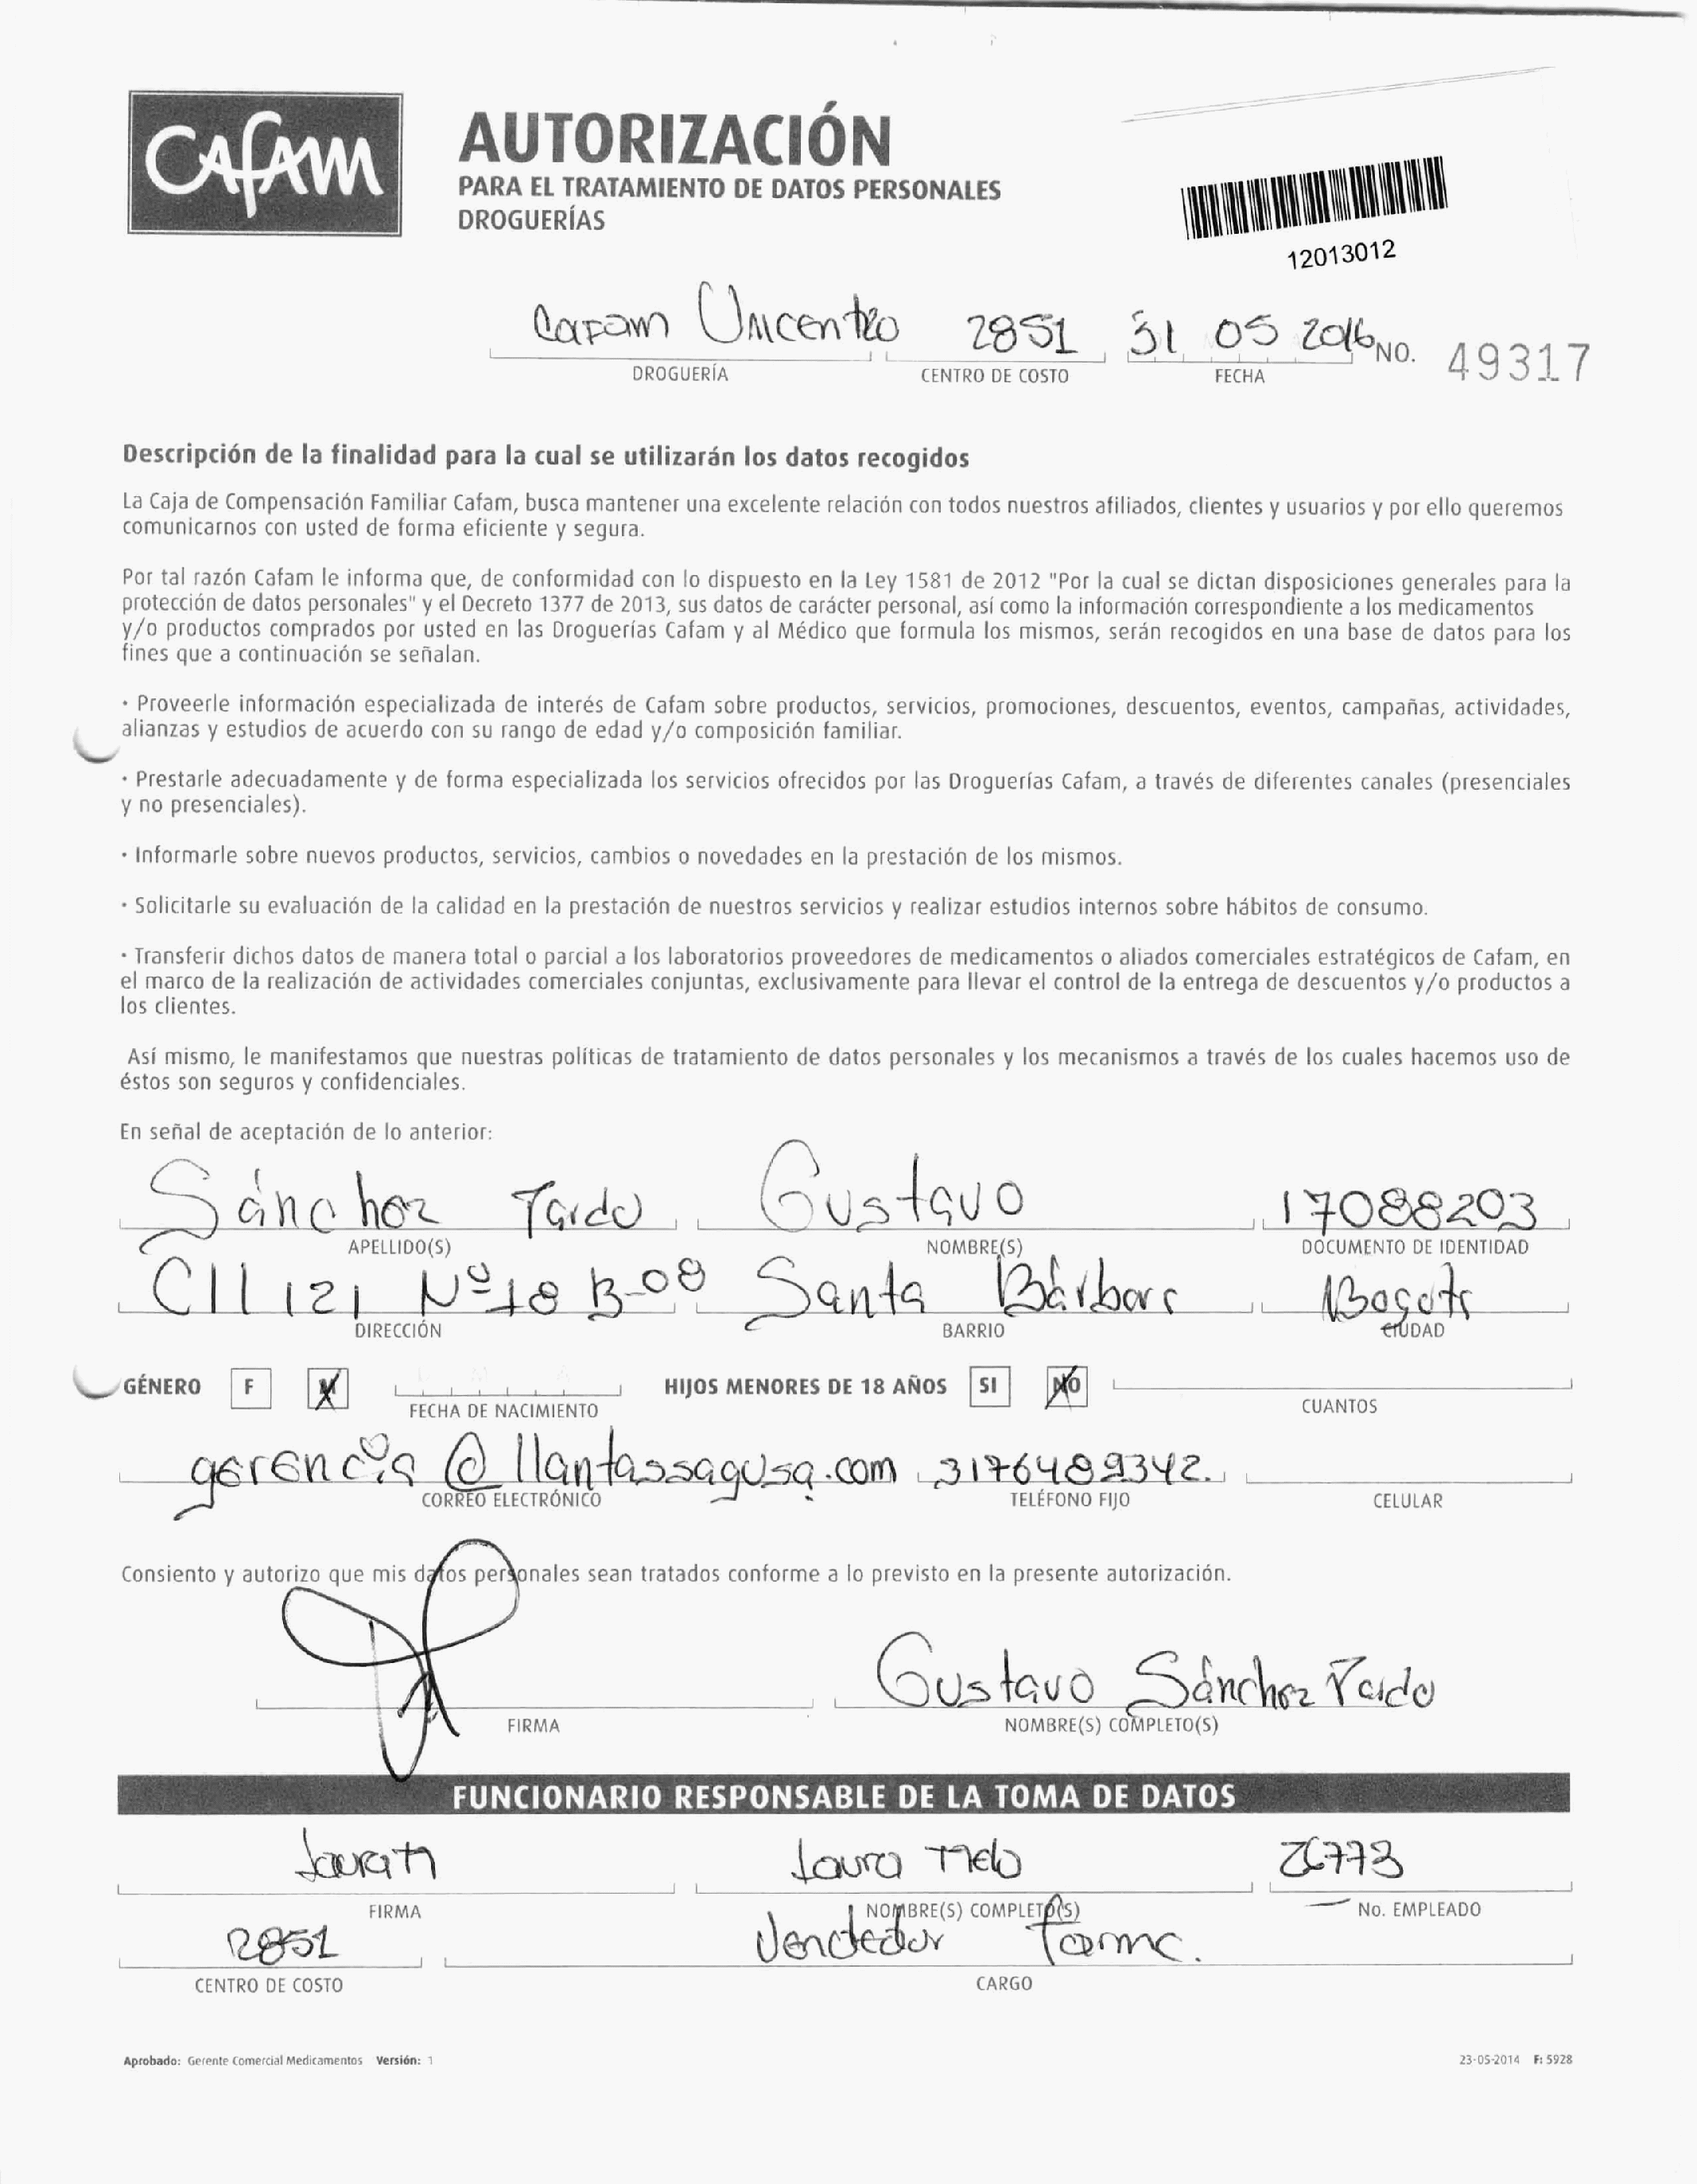 CAFAM
AUTORIZACIÓN
PARA EL TRATAMIENTO DE DATOS PERSONALES
DROGUERÍAS
12013012
Cafam Unicentro 2851 31 05 2016 NO. 49317
DROGUERÍA CENTRO DE COSTO FECHA
Descripción de la finalidad para la cual se utilizarán los datos recogidos
La Caja de Compensación Familiar Cafam, busca mantener una excelente relación con todos nuestros afiliados, clientes y usuarios y por ello queremos
comunicarnos con usted de forma eficiente y segura.
Por tal razón Cafam le informa que, de conformidad con lo dispuesto en la Ley 1581 de 2012 "Por la cual se dictan disposiciones generales para la
protección de datos personales" y el Decreto 1377 de 2013, sus datos de carácter personal, así como la información correspondiente a los medicamentos
y/o productos comprados por usted en las Droguerías Cafam y al Médico que formula los mismos, serán recogidos en una base de datos para los
fines que a continuación se señalan.
· Proveerle información especializada de interés de Cafam sobre productos, servicios, promociones, descuentos, eventos, campañas, actividades,
alianzas y estudios de acuerdo con su rango de edad y/o composición familiar.
· Prestarle adecuadamente y de forma especializada los servicios ofrecidos por las Droguerías Cafam, a través de diferentes canales (presenciales
y no presenciales).
· Informarle sobre nuevos productos, servicios, cambios o novedades en la prestación de los mismos.
· Solicitarle su evaluación de la calidad en la prestación de nuestros servicios y realizar estudios internos sobre hábitos de consumo.
· Transferir dichos datos de manera total o parcial a los laboratorios proveedores de medicamentos o aliados comerciales estratégicos de Cafam, en
el marco de la realización de actividades comerciales conjuntas, exclusivamente para llevar el control de la entrega de descuentos y/o productos a
los clientes.
Así mismo, le manifestamos que nuestras políticas de tratamiento de datos personales y los mecanismos a través de los cuales hacemos uso de
éstos son seguros y confidenciales.
En señal de aceptación de lo anterior:
Sánchez Pardo Gustavo 17088203
APELLIDO(S) NOMBRE(S) DOCUMENTO DE IDENTIDAD
Cll 121 Nº 18 B-08 Santa Bárbara Bogota
DIRECCIÓN BARRIO CIUDAD
GÉNERO F M HIJOS MENORES DE 18 AÑOS SI NO
FECHA DE NACIMIENTO CUANTOS
gerencia @ llantassagusa.com 3176489342.
CORREO ELECTRÓNICO TELÉFONO FIJO CELULAR
Consiento y autorizo que mis datos personales sean tratados conforme a lo previsto en la presente autorización.
Gustavo Sánchez Pardo
FIRMA NOMBRE(S) COMPLETO(S)
FUNCIONARIO RESPONSABLE DE LA TOMA DE DATOS
Laura M Laura Melo 26773
FIRMA NOMBRE(S) COMPLETO(S) No. EMPLEADO
2851 Vendedor Farma.
CENTRO DE COSTO CARGO
Aprobado: Gerente Comercial Medicamentos Versión: 1 23-05-2014 F: 5928